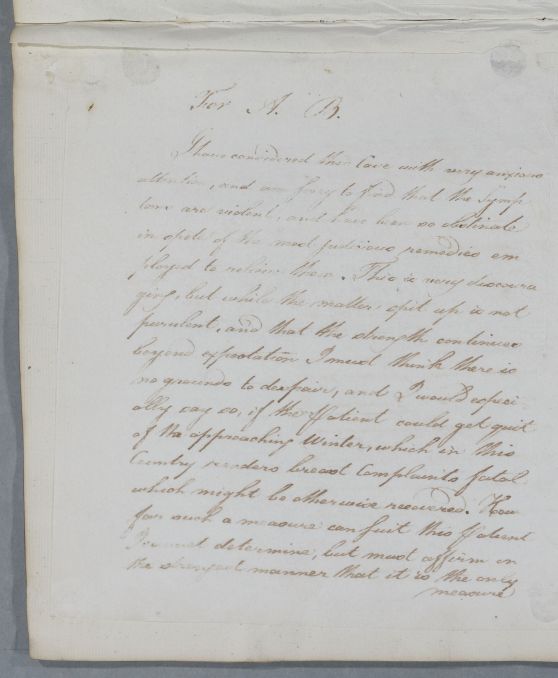 For A. B.
I have considered this Case with very anxious
attention, and am sorry to find that the Symp
toms are violent, and have been so obstinate
in spite of the most Judicious remedies em
ployed to relieve them. This is very discoura
ging, but while the matter spit up is not
purulent, and that the strength continues
beyond expectation I must think there is
no grounds to despair, and I would especi
ally say so, if the Patient could get quit
of the approaching Winter, which in this
Country renders breast Complaints fatal
which might be otherwise recovered. How
far such a measure can suit this Patient
I cannot determine, but must affirm in
the strongest manner that it is the only
measure